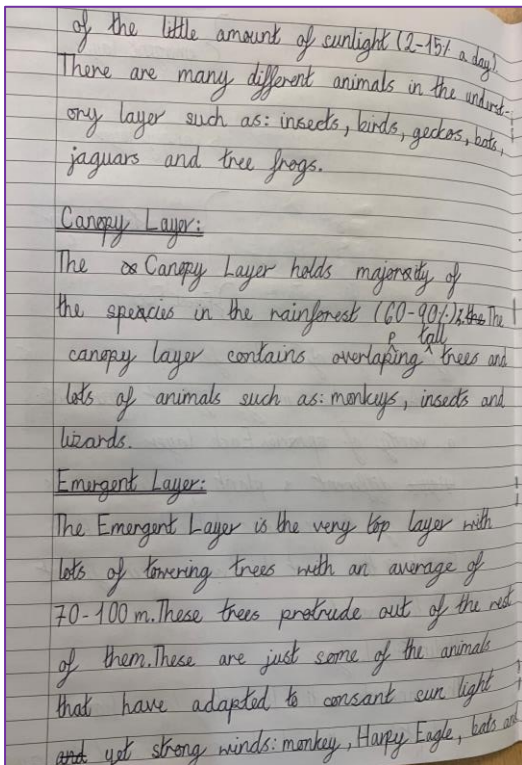 of the little amount of sunlight (2-15% a day).
There are many different animals in the underst-
ory layer such as: insects, birds, geckos, bats,
jaguars and tree frogs.
Canopy Layer:
The Canopy Layer holds majority of
the species in the rainforest (60-90%). The
canopy layer contains overlapping tall trees and
lots of animals such as: monkeys, insects and
lizards.
Emergent Layer:
The Emergent Layer is the very top layer with
lots of towering trees with an average of
70-100 m. These trees protrude out of the rest
of them. These are just some of the animals
that have adapted to consant sun light
and yet strong winds: monkey, Harpy Eagle, bats and